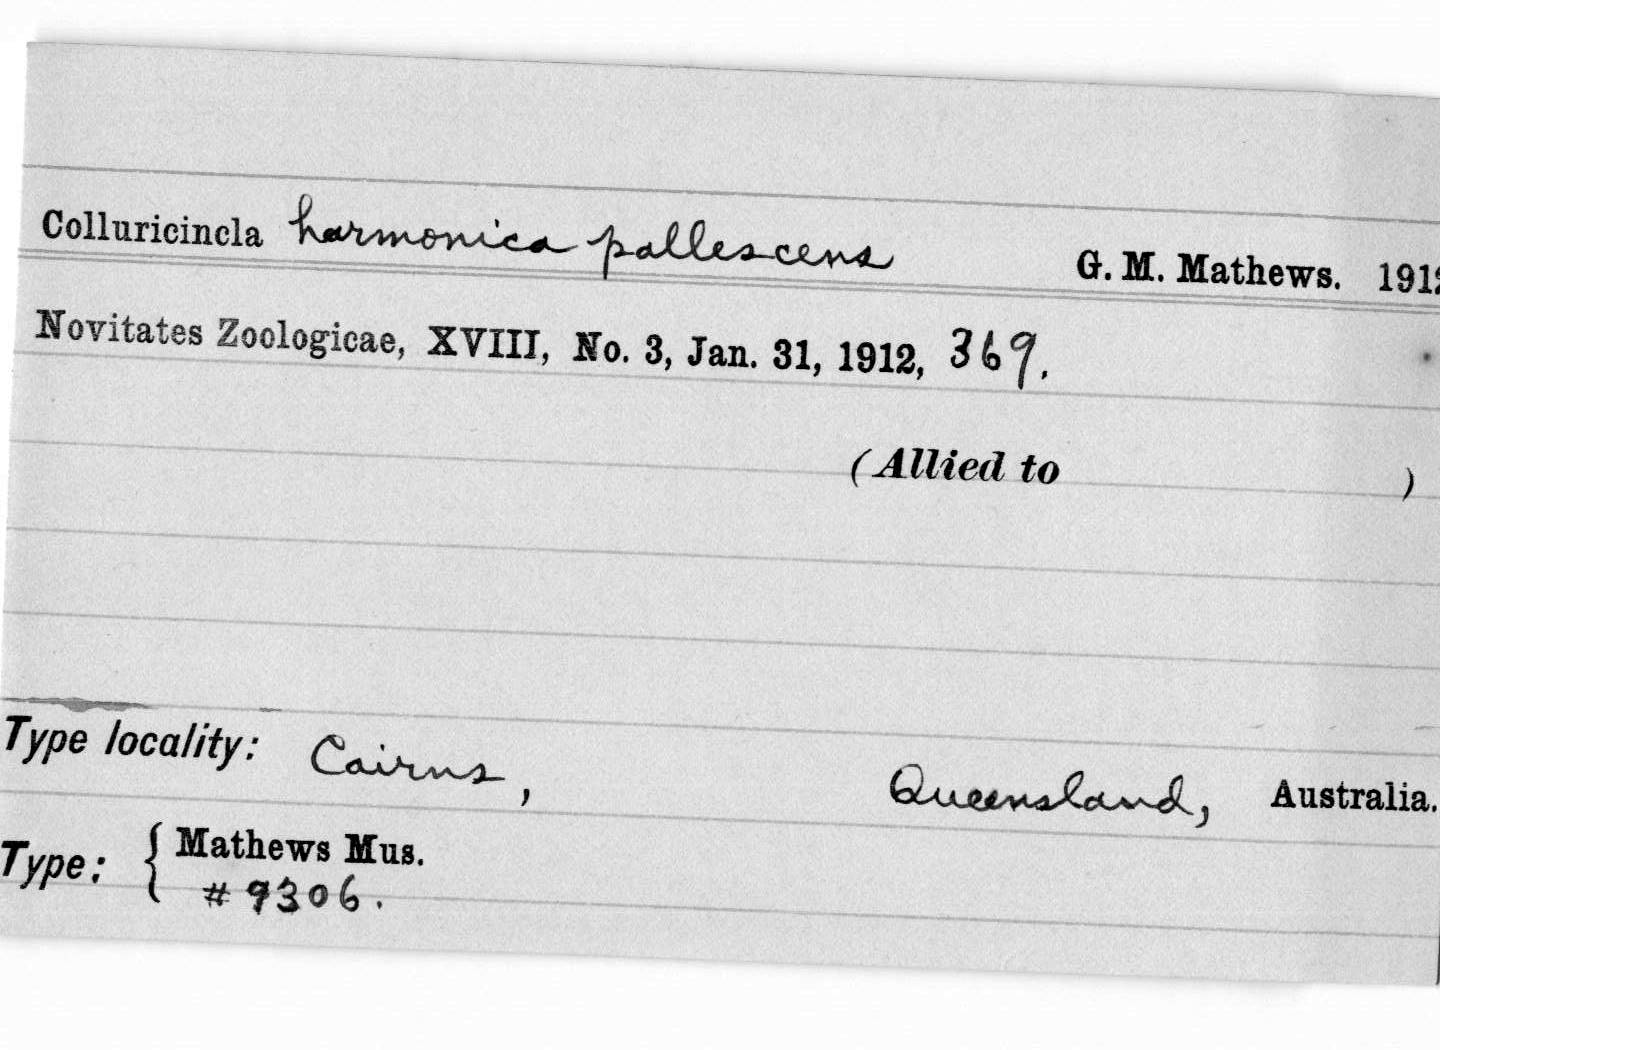 Colluricincla harmonica pallescens G. M. Mathews. 1912
Novitates Zoologicae, XVIII, No. 3, Jan. 31, 1912, 369.
(Allied to )
Type locality: Cairns, Queensland, Australia.
Type: { Mathews Mus.
# 9306.